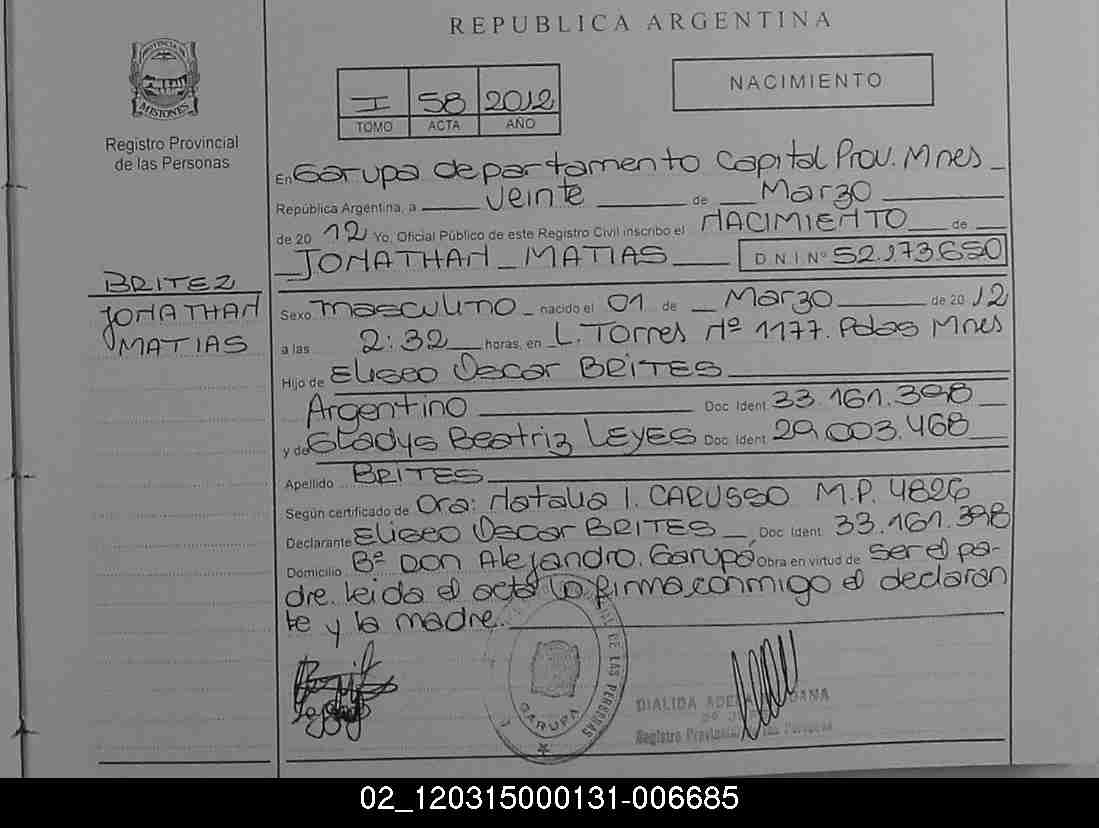 REPUBLICA ARGENTINA
PROVINCIA DE MISIONES
Registro Provincial
de las Personas
I 58 2012
TOMO ACTA AÑO
NACIMIENTO
En Garupa departamento Capital Prov. Mnes
República Argentina, a veinte de Marzo
de 2012 Yo, Oficial Público de este Registro Civil inscribo el NACIMIENTO de
JONATHAN MATIAS D.N.I Nº 52.173.650
BRITEZ
JONATHAN
MATIAS
Sexo masculino nacido el 01 de Marzo de 2012
a las 2:32 horas, en L. Torres Nº 1177. Pdas Mnes
Hijo de Eliseo Oscar BRITES
Argentino Doc Ident 33.161.398
y de Gladys Beatriz LEYES Doc Ident 29.003.468
Apellido BRITES
Según certificado de Dra: Natalia I. CARUSSO M.P. 4826
Declarante Eliseo Oscar BRITES Doc Ident 33.161.398
Domicilio Bº Don Alejandro. Garupá Obra en virtud de ser el pa-
dre. leida el acta la firma conmigo el declaran
te y la madre.
DE LAS PERSONAS
GARUPA
DIALIDA
Registro Provincial de las Personas
02_120315000131-006685